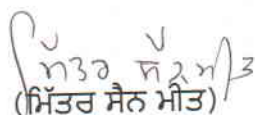 ਮਿੱਤਰ ਸੈਨ ਮੀਤ
(ਮਿੱਤਰ ਸੈਨ ਮੀਤ)